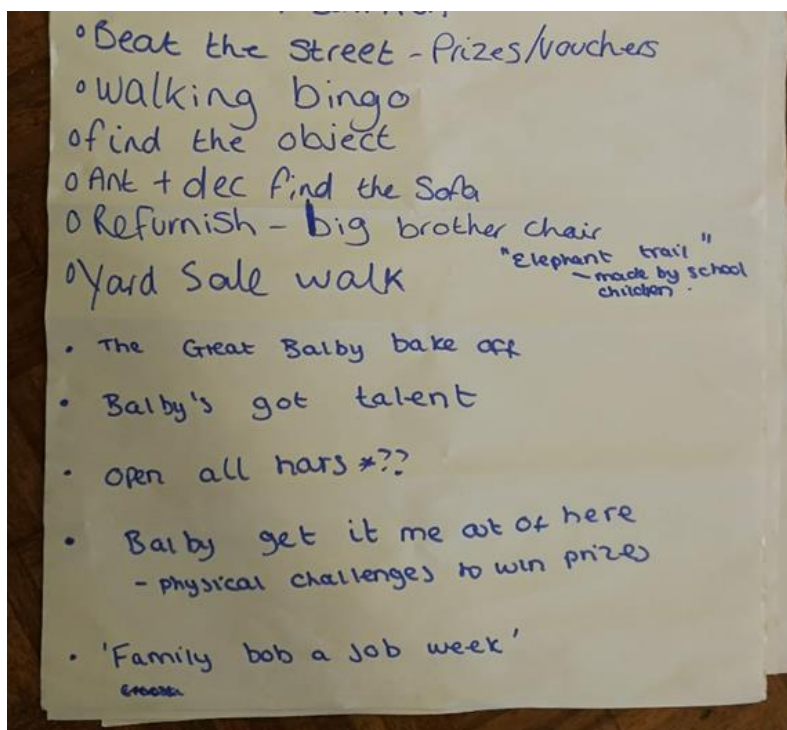 o Beat the street - Prizes/vouchers
o walking bingo
o find the object
o Ant + dec find the Sofa
o Refurnish - big brother chair
"Elephant trail"
- made by school
children.
o Yard Sale walk
• The Great Balby bake off
• Balby's got talent
• open all hars *??
• Balby get it me out of here
- physical challenges to win prizes
• 'Family bob a job week'